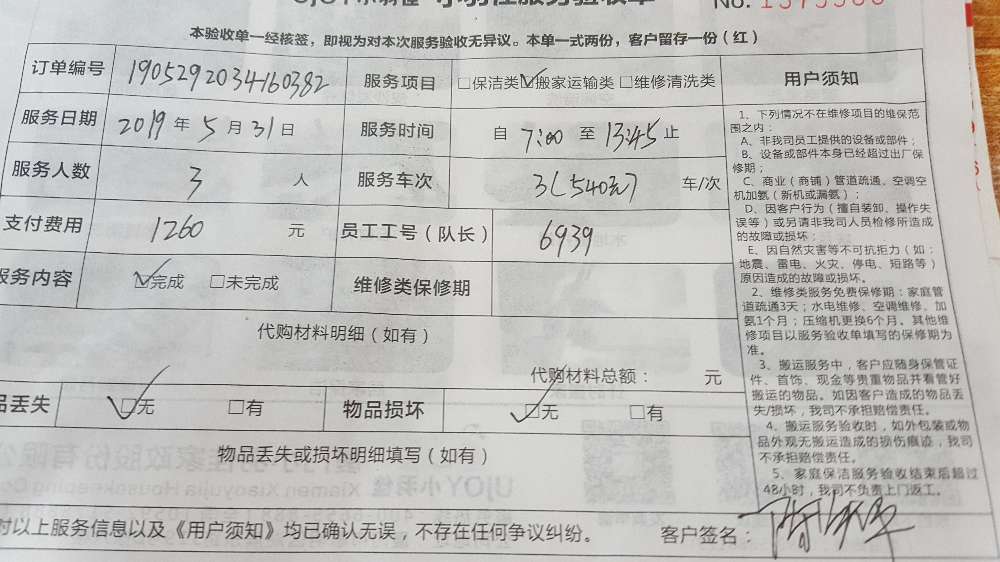 UJOY小羽佳
服务验收单
No. 1375566
本验收单一经核签，即视为对本次服务验收无异议。本单一式两份，客户留存一份（红）
订单编号 1905292034160382 服务项目 □保洁类 ☑搬家运输类 □维修清洗类
服务日期 2019 年 5 月 31 日 服务时间 自 7:00 至 13:45 止
服务人数 3 人 服务车次 3(540元) 车/次
支付费用 1260 元 员工工号（队长） 6939
服务内容 ☑完成 □未完成 维修类保修期
代购材料明细（如有）
代购材料总额： 元
品丢失 ☑无 □有 物品损坏 ☑无 □有
物品丢失或损坏明细填写（如有）
对以上服务信息以及《用户须知》均已确认无误，不存在任何争议纠纷。 客户签名：
用户须知
1、下列情况不在维修项目的维保范
围之内：
A、非我司员工提供的设备或部件；
B、设备或部件本身已经超过出厂保
修期；
C、商业（商铺）管道疏通、空调空
机加氨（新机或漏氨）；
D、因客户行为（擅自装卸、操作失
误等）或另请非我司人员检修所造成
的故障或损坏；
E、因自然灾害等不可抗拒力（如：
地震、雷电、火灾、停电、短路等）
原因造成的故障或损坏。
2、维修类服务免费保修期：家庭管
道疏通3天；水电维修、空调维修、加
氨1个月；压缩机更换6个月。其他维
修项目以服务验收单填写的保修期为
准。
3、搬运服务中，客户应随身保管证
件、首饰、现金等贵重物品并看管好
搬运的物品。如因客户造成的物品丢
失/损坏，我司不承担赔偿责任。
4、搬运服务验收时，如外包装或物
品外观无搬运造成的损伤痕迹，我司
不承担赔偿责任。
5、家庭保洁服务验收结束后超过
48小时，我司不负责上门返工。